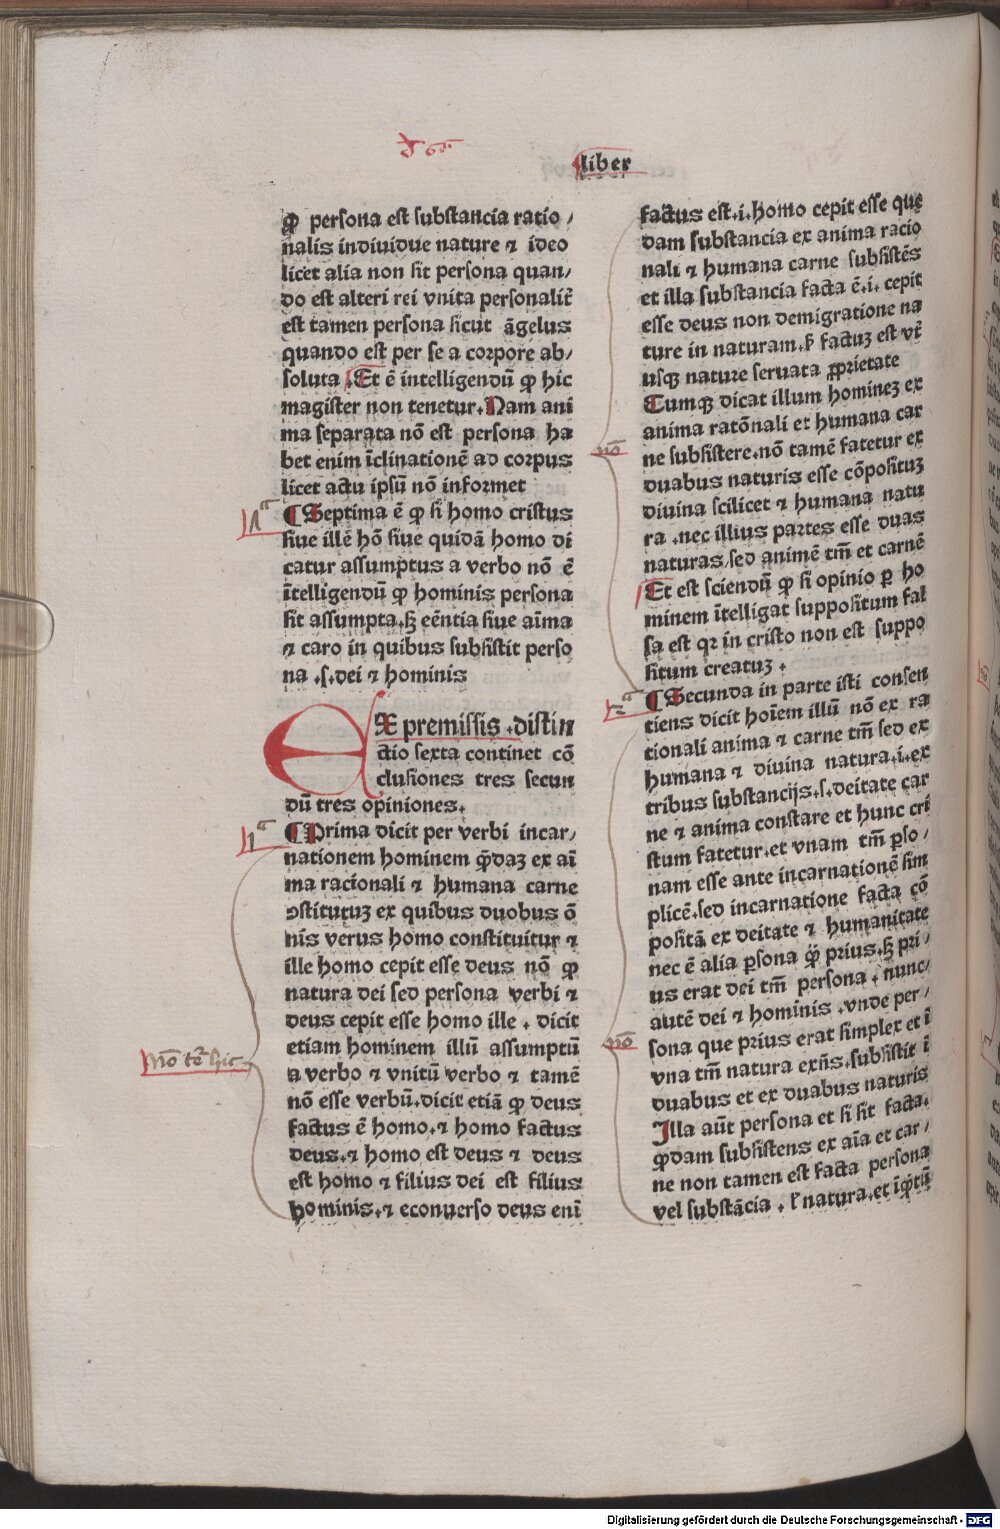 liber
ꝙ persona est substancia racio /
nalis indiuidue nature ⁊ ideo
licet alia non sit persona quan/
do est alteri rei vnita personalit̄
est tamen persona sicut āgelus
quando est per se a corpore ab/
soluta .Et ē intelligendū ꝙ hic
magister non tenetur.Nam ani
ma separata nō est persona ha
bet enim īclinationē ad corpus
licet actu ipsū nō informet
1ᵃ
¶ Septima ē ꝙ si homo cristus
siue illē hō siue quidā homo di
catur assumptus a verbo nō ē
ītelligendū ꝙ hominis persona
sit assumpta.sꝫ eēntia siue aīma
⁊ caro in quibus subsistit perso
na .s.dei ⁊ hominis
EX premissis .distin
ctio sexta continet cō
clusiones tres secun
dū tres opiniones.
1ᵃ
¶ Prima dicit per verbi incar/
nationem hominem qͥdaꝫ ex aī
ma racionali ⁊ humana carne
ↄstitutuꝫ ex quibus duobus ō
nis verus homo constituitur ⁊
ille homo cepit esse deus nō ꝙ
natura dei sed persona verbi ⁊
deus cepit esse homo ille . dicit
etiam hominem illū assumptū
Nō
a verbo ⁊ vnitū verbo ⁊ tamē
nō esse verbū.dicit etiā ꝙ deus
factus ē homo.⁊ homo factus
deus.⁊ homo est deus ⁊ deus
est homo ⁊ filius dei est filius
hominis.⁊ econuerso deus enī
factus est.i.homo cepit esse que
dam substancia ex anima racio
nali ⁊ humana carne subsistēs
et illa substancia facta ē.i. cepit
esse deus non demigratione na
ture in naturam.sꝫ factuꝫ est vt̄
usqꝫ nature seruata ꝓprietate
Cumqꝫ dicat illum homineꝫ ex
anima ratōnali et humana car
nō
ne subsistere.nō tamē fatetur ex
duabus naturis esse cōposituꝫ
diuina scilicet ⁊ humana natu
ra .nec illius partes esse duas
naturas sed animē tm̄ et carnē
Et est sciendū ꝙ si opinio ꝑ ho
minem ītelligat suppositum fal
sa est qꝛ in cristo non est suppo
situm creatuꝫ .
2ᵃ
¶ Secunda in parte isti consen
tiens dicit hoīem illū nō ex ra
tionali anima ⁊ carne tm̄ sed ex
humana ⁊ diuina natura.i.ex
tribus substancijs.s.deitate car
ne ⁊ anima constare et hunc cri
stum fatetur.et vnam tm̄ ꝑso /
nam esse ante incarnationē sim
plicē.sed incarnatione facta cō
positā ex deitate ⁊ humanitate
nec ē alia ꝑsona qͣꝫ prius.sꝫ pri /
us erat dei tm̄ persona . nunc/
autē dei ⁊ hominis .vnde per /
nō
sona que prius erat simplex et ī
vna tm̄ natura exn̄s.subsistit ī
duabus et ex duabus naturis
Illa aūt persona et si sit facta.
qͥdam subsistens ex aīa et car /
ne non tamen est facta persona
vel substācia . ł natura.et īqͣꝫtū
Digitalisierung gefördert durch die Deutsche Forschungsgemeinschaft - DFG